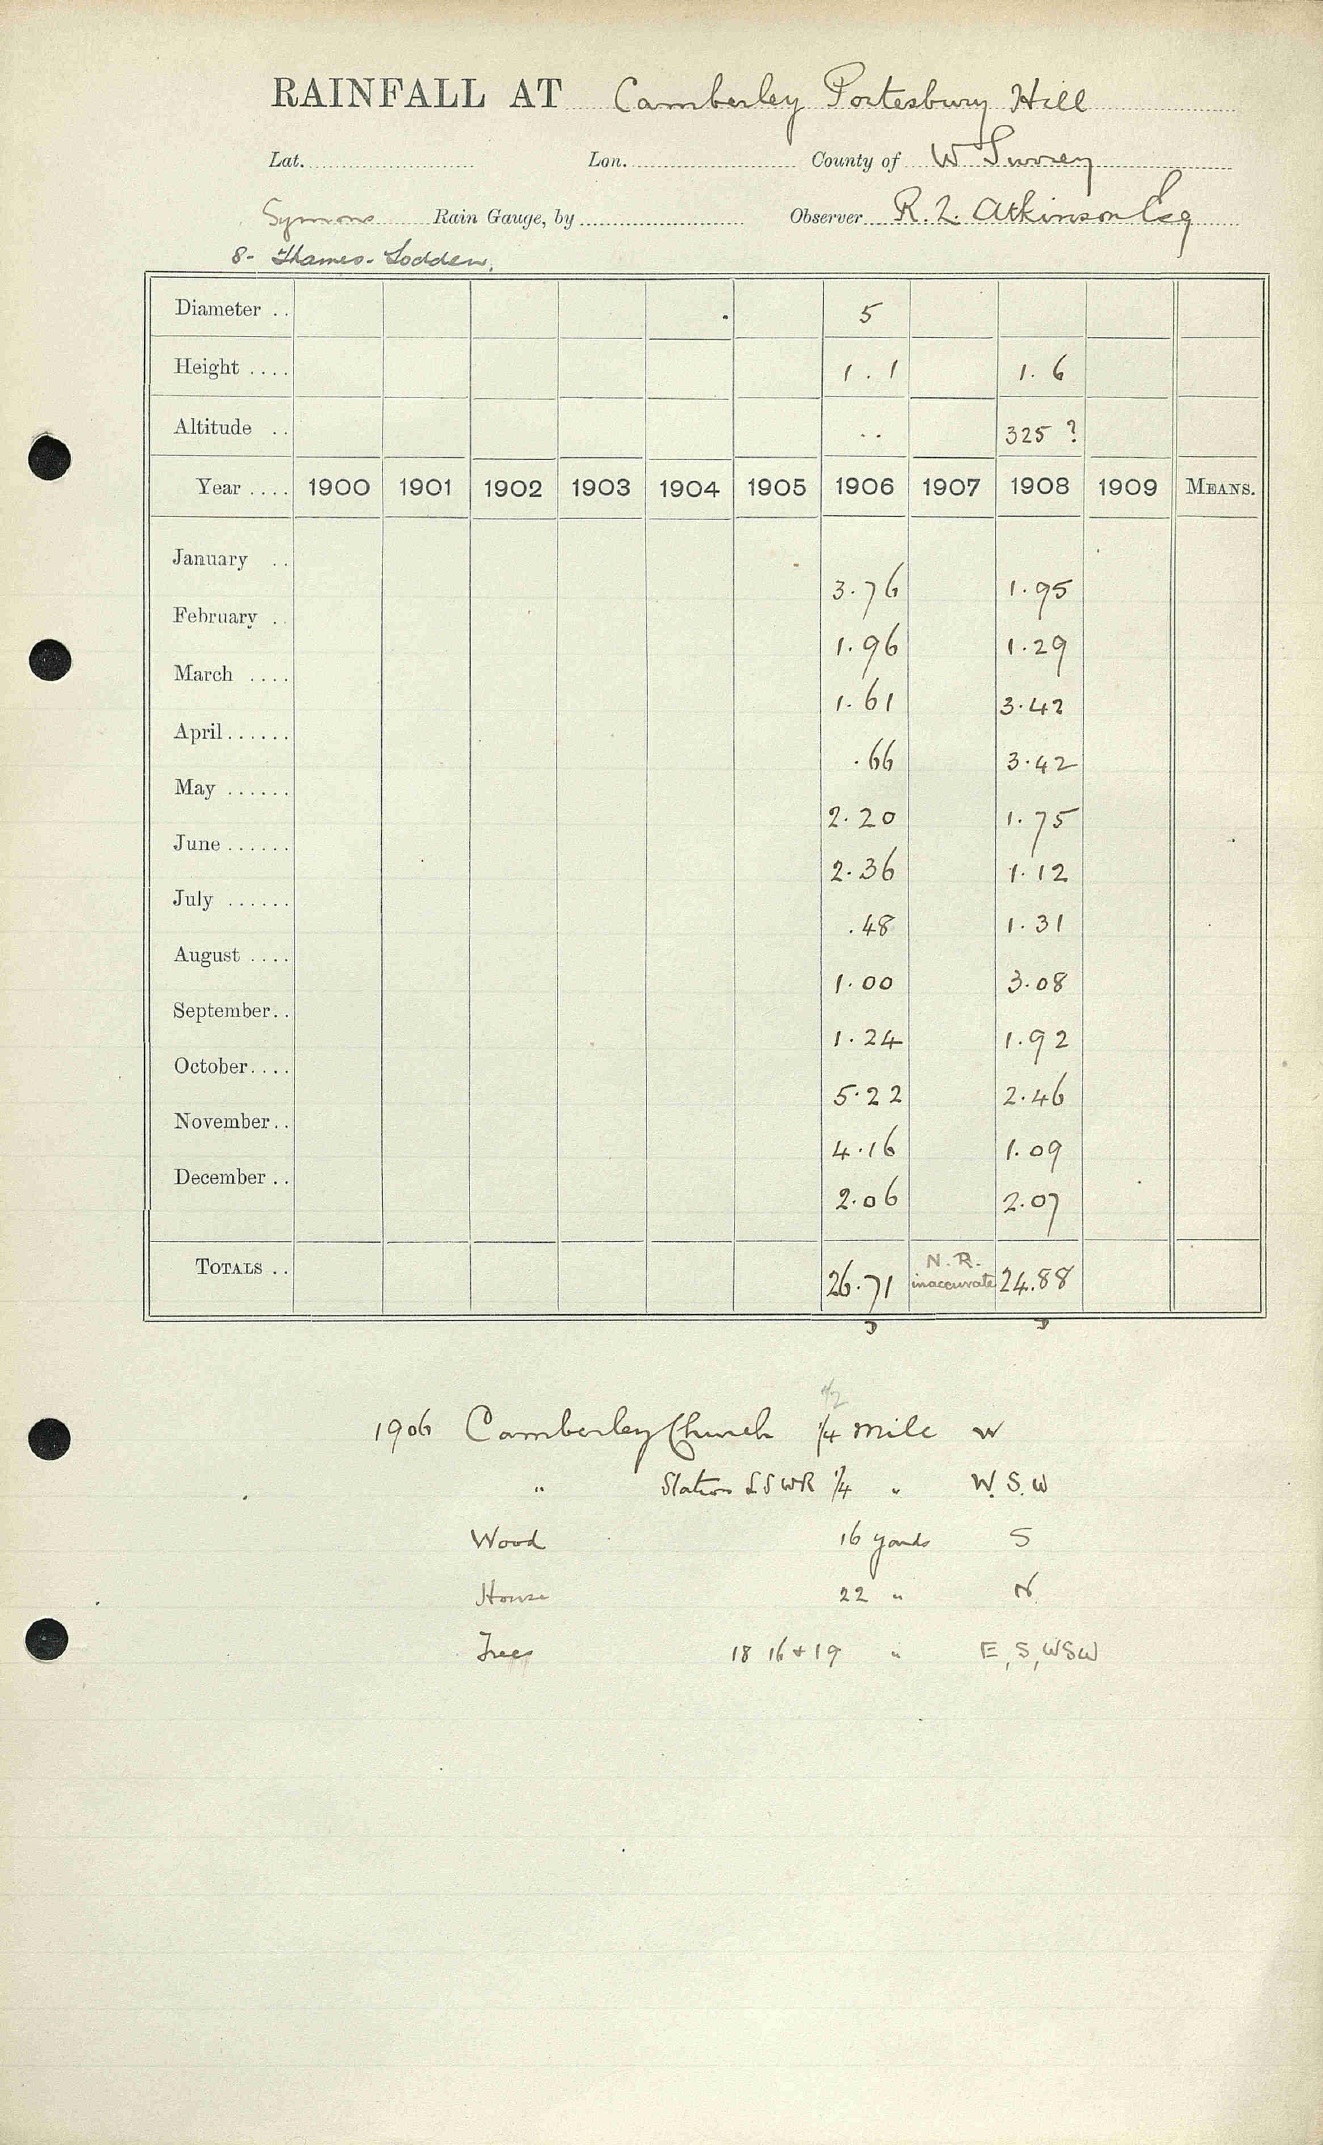 RAINFALL AT Camberley Portesbury Hill
Lat. Lon. County of W Surrey
Symons Rain Gauge, by Observer R. L. Atkinson Esq
8- Thames-Lodden.
Diameter .. 5
Height .... 1.1 1.6
Altitude .. .. 325 ?
Year .... 1900 1901 1902 1903 1904 1905 1906 1907 1908 1909 MEANS.
January .. 3.76 1.95
February . 1.96 1.29
March .... 1.61 3.42
April...... .66 3.42
May ...... 2.20 1.75
June ...... 2.36 1.12
July ...... .48 1.31
August .... 1.00 3.08
September.. 1.24 1.92
October.... 5.22 2.46
November.. 4.16 1.09
December .. 2.06 2.07
TOTALS .. 26.71 N.R. inaccurate 24.88
1/2
1906 Camberley Church 1/4 mile W
" Station L S W R 1/4 " W.S.W
Wood 16 yards S
House 22 " N
Trees 18 16 + 19 " E, S, WSW